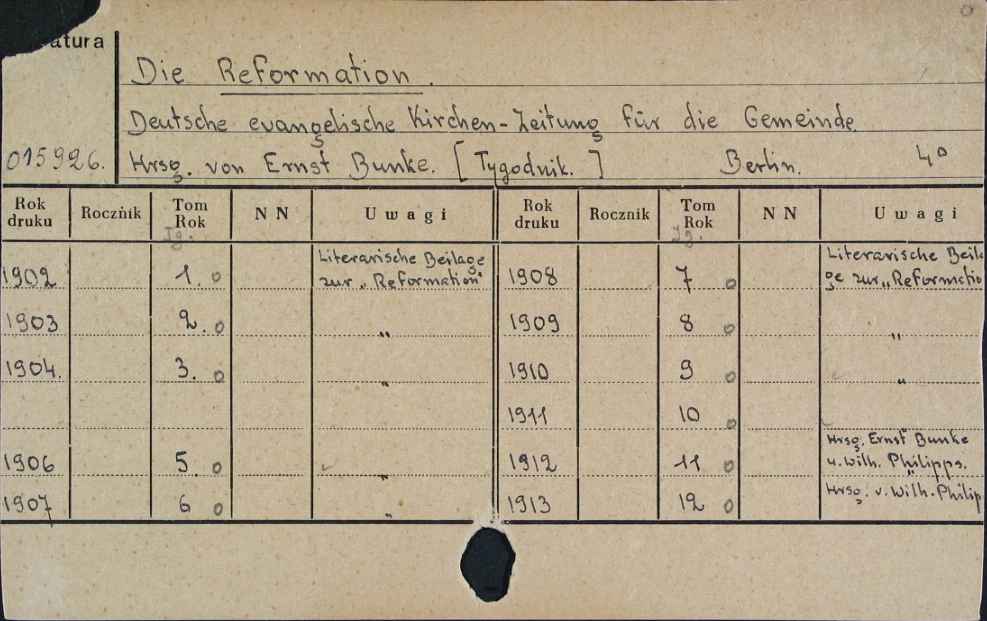 atura
Die Reformation.
Deutsche evangelische Kirchen-Zeitung für die Gemeinde.
015926. Hrsg. von Ernst Bunke. [Tygodnik.] Berlin. 4°
Rok druku Rocznik Tom Rok NN Uwagi Rok druku Rocznik Tom Rok NN Uwagi
Jg. Jg.
1902 1. o Literarische Beilage zur „Reformation" 1908 7 o Literarische Beila
ge zur „Reformatio
1903 2. o „ 1909 8 o „
1904. 3. o „ 1910 9 o „
1911 10 o
1906 5. o „ 1912 11 o Hrsg. Ernst Bunke
u. Wilh. Philipps.
1907 6 o „ 1913 12 o Hrsg. v. Wilh. Philip